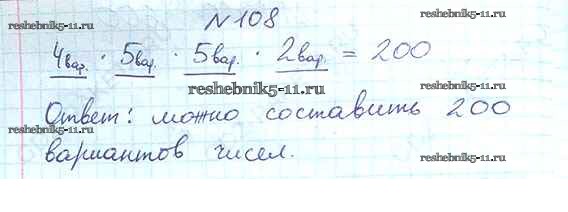 №108
reshebnik5-11.ru reshebnik5-11.ru
4вар. · 5вар. · 5вар. · 2вар. = 200
reshebnik5-11.ru
Ответ: можно составить 200
reshebnik5-11.ru reshebnik5-11.ru
вариантов чисел.
reshebnik5-11.ru